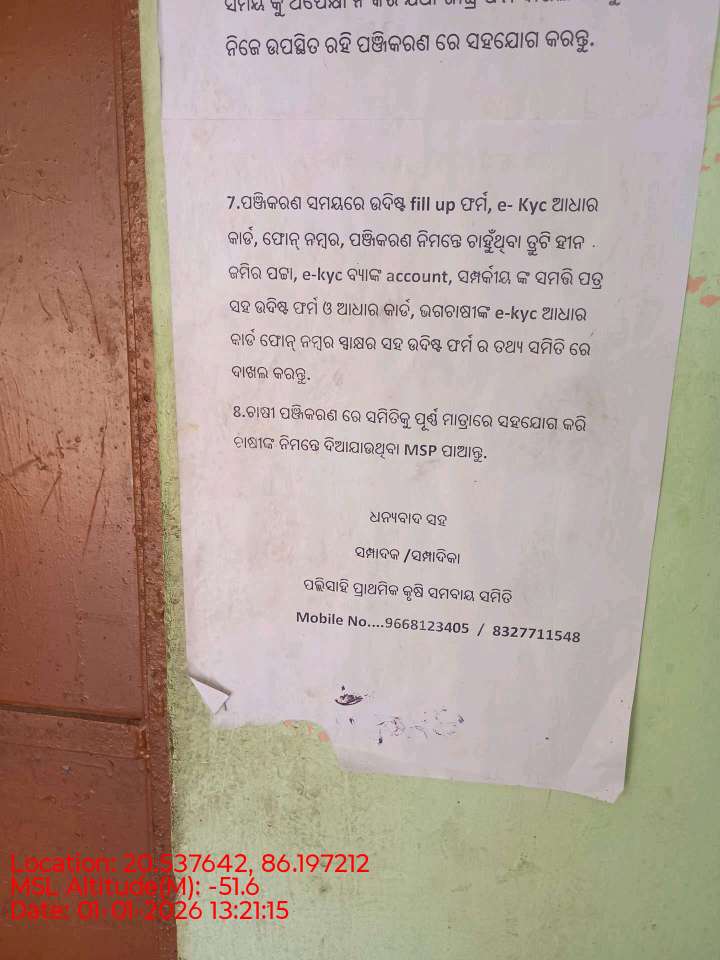 ନିଜେ ଉପସ୍ଥିତ ରହି ପଞ୍ଜିକରଣ ରେ ସହଯୋଗ କରନ୍ତୁ.
7.ପଞ୍ଜିକରଣ ସମୟରେ ଉଦିଷ୍ଟ fill up ଫର୍ମ, e- Kyc ଆଧାର
କାର୍ଡ, ଫୋନ୍ ନମ୍ବର, ପଞ୍ଜିକରଣ ନିମନ୍ତେ ଚାହୁଁଥିବା ତ୍ରୁଟି ହୀନ .
ଜମିର ପଟ୍ଟା, e-kyc ବ୍ୟାଙ୍କ account, ସମ୍ପର୍କୀୟ ଙ୍କ ସମତ୍ତି ପତ୍ର
ସହ ଉଦିଷ୍ଟ ଫର୍ମ ଓ ଆଧାର କାର୍ଡ, ଭଗଚାଷୀଙ୍କ e-kyc ଆଧାର
କାର୍ଡ ଫୋନ୍ ନମ୍ବର ସ୍ୱାକ୍ଷର ସହ ଉଦିଷ୍ଟ ଫର୍ମ ର ତଥ୍ୟ ସମିତି ରେ
ଦାଖଲ କରନ୍ତୁ.
8.ଚାଷୀ ପଞ୍ଜିକରଣ ରେ ସମିତିକୁ ପୂର୍ଣ୍ଣ ମାତ୍ରାରେ ସହଯୋଗ କରି
ଚାଷୀଙ୍କ ନିମନ୍ତେ ଦିଆଯାଉଥିବା MSP ପାଆନ୍ତୁ.
ଧନ୍ୟବାଦ ସହ
ସମ୍ପାଦକ /ସମ୍ପାଦିକା
ପଲ୍ଲିସାହି ପ୍ରାଥମିକ କୃଷି ସମବାୟ ସମିତି
Mobile No....9668123405 / 8327711548
Location: 20.537642, 86.197212
MSL Altitude(M): -51.6
Date: 01-01-2026 13:21:15